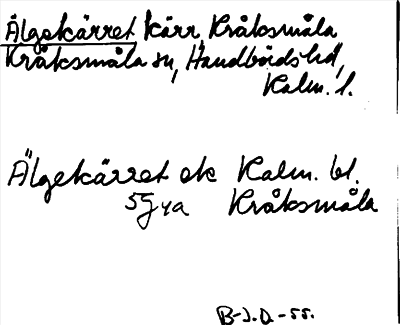 Älgekärret kärr, Kråksmåla
Kråksmåla sn, Handbörds hd,
Kalm. l.
Älgekärret ek Kalm. bl.
5G ya Kråksmåla
B-J.D.-55.